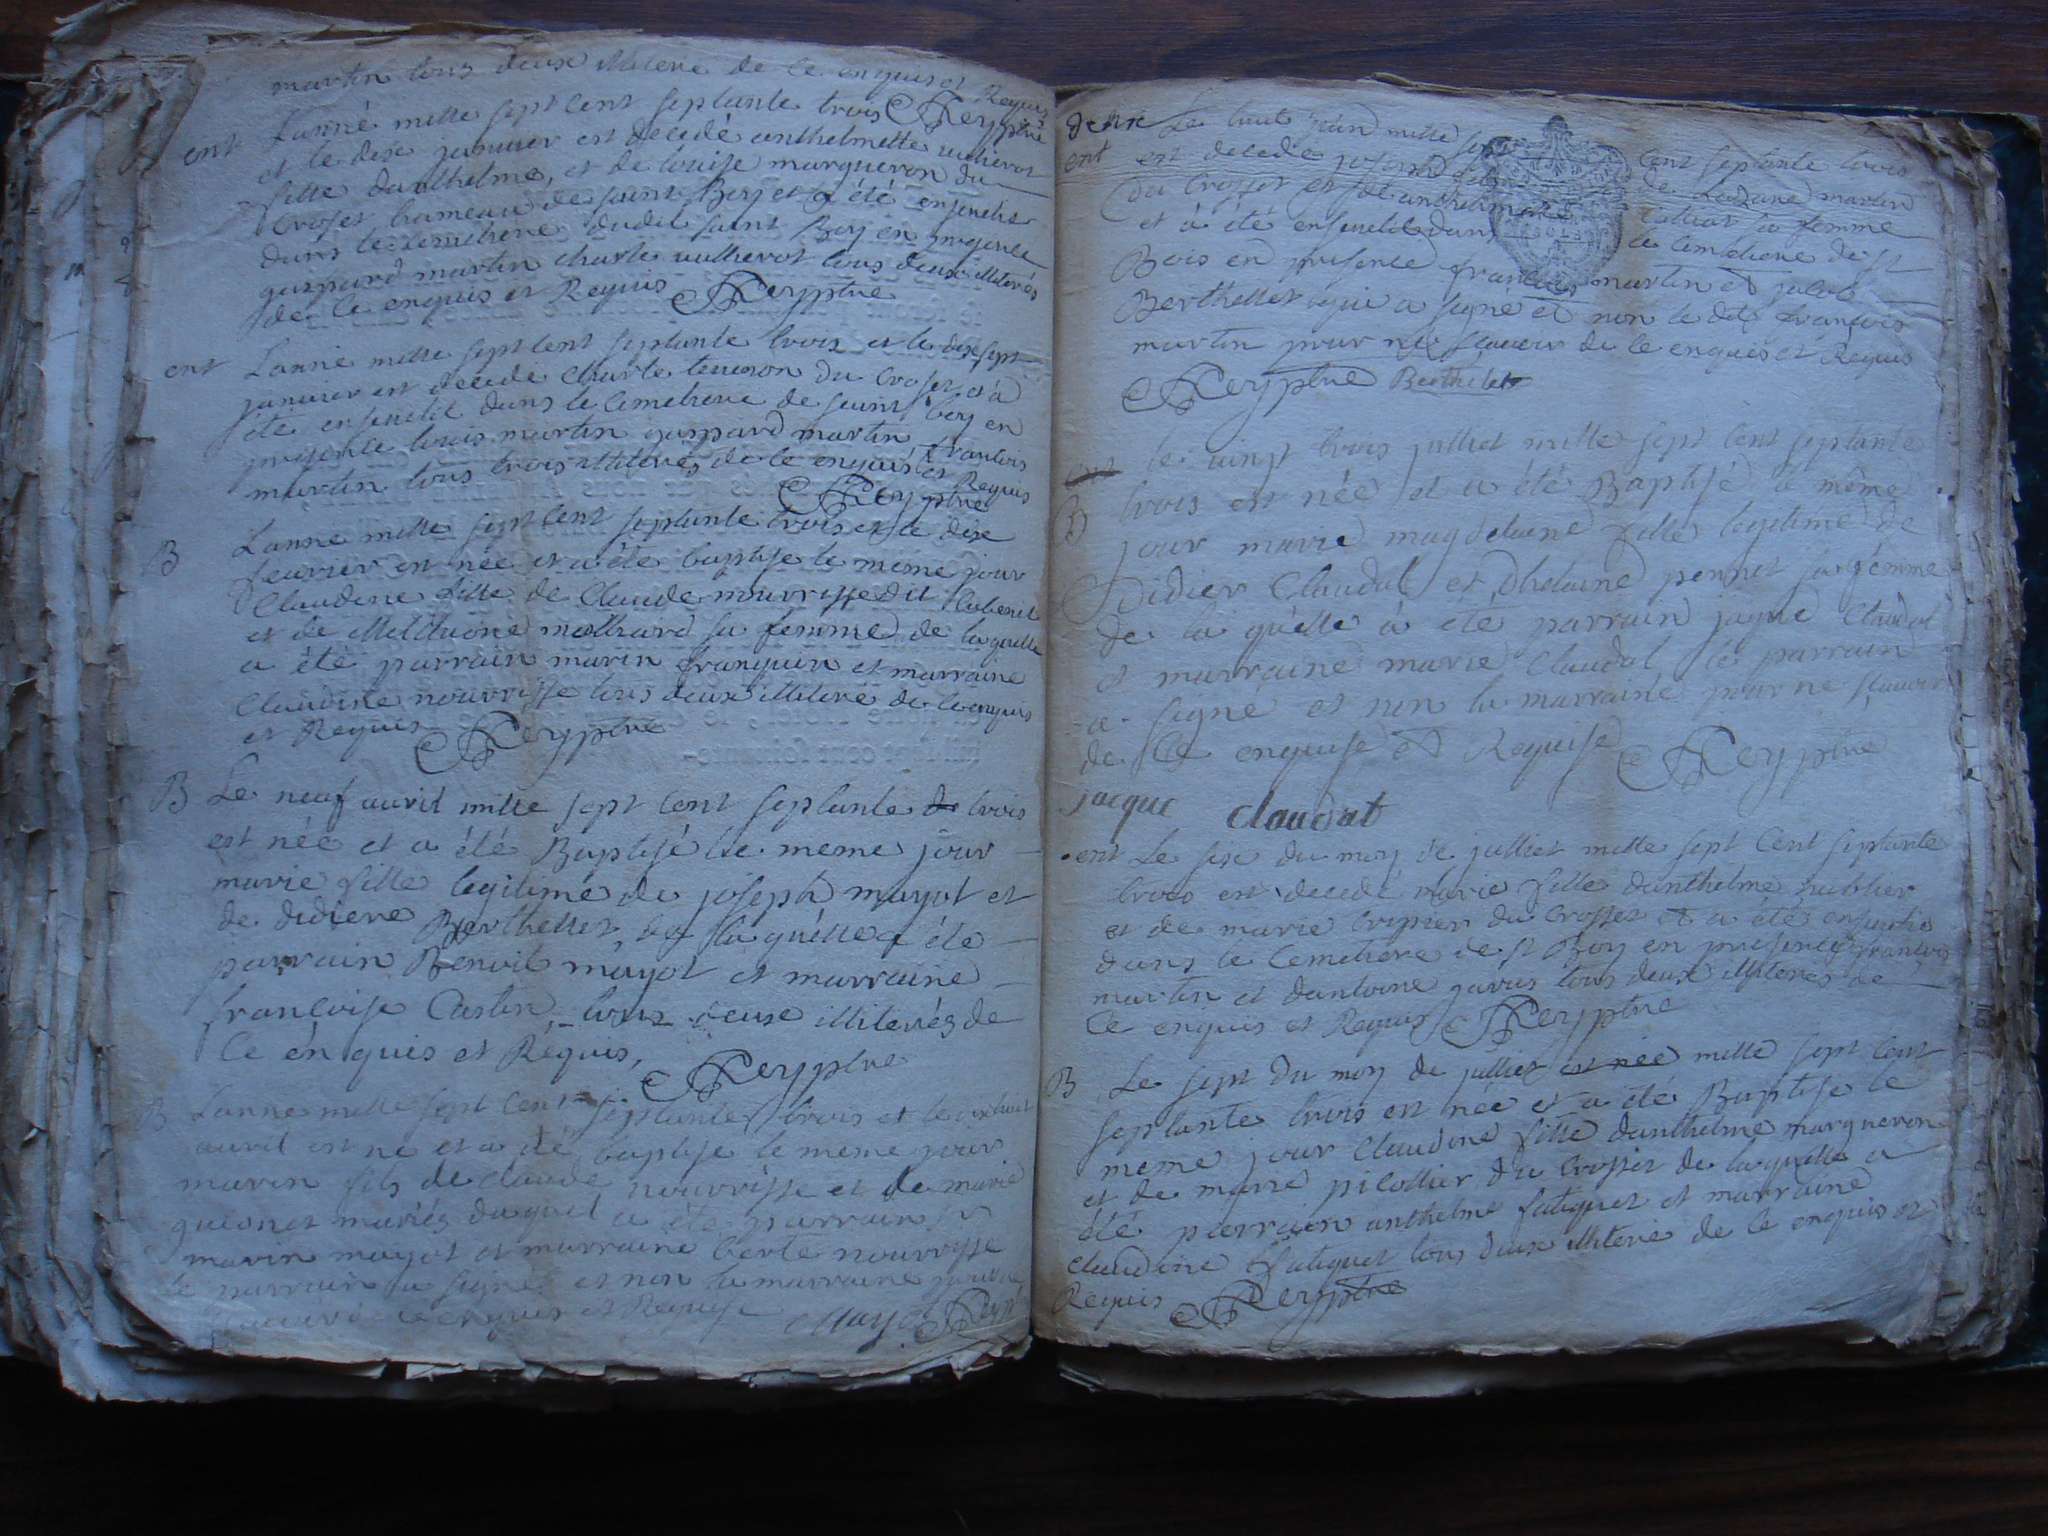 martin tous deux illiteré de ce enquis et Requis
Reyptre
ent Lanné mille sept cent septante trois
et le dix janvier est decedé anthelmette vulierot
fille danthelme, et de louise margueron du
Croset hameau de saint Boy et a été ensevelie
dans le cemetiere dudit saint Boy en presence
gaspard martin charle vullierot tous deux illiterés
de ce enquis et Requis Reyptre
ent Lanné mille sept cent septante trois et le dix sept
janvier est decede Charle tenuson du Croset et à
été ensevelit dans le Cemetiere de saint boy en
presence louis martin gaspard martin francois
martin tous trois illiterés de ce enquis et Requis
Reyptre
B Lanne mille sept cent septante trois et le dix
feuvrier est née et a été baptise le meme jour
Claudine fille de Claude nourrisse dit
et de sa femme de laquelle
a été parrain marin franquin et marraine
Claudine nourrisse tous deux illiteré de ce enquis
et Requis Reyptre
B Le neuf avril mille sept cent septante de trois
est née et a été Baptisé le meme jour
marie fille legitime de joseph mayot et
de didiere Berthellet de la quélle a été
parrain Benoit mayot et marraine
francoise Carlin tous deux illiterés de
Ce én quis et Réquis,
Reyptre
B Lanne mille sept Cent septante trois et le
avril est né et a été baptise le meme jour
marin fils de claude nourrisse et de marie
quisonet mariés duquel a été parrain sr
marin mayot et marraine berte nourrisse
le parrain a signé et non la marraine pour ne
de ce enquis et Requise Mayot Reyptre
deux Le huit juin mille sept cent septante trois
ent est decede joseph de Ledzane martin
du Crosset et de anthelmette sa femme
et à été ensevelit dans le Cimetiere de st
Bois en presence francois martin et jacob
Berthellet qui a signe et non le dit francois
martin pour ne scavoir de ce enquis et Requis
Reyptre Berthelet
ent le vingt trois julliet mille sept cent septante
B trois est née et a été Baptisé le même
jour marie magdelaine fille legitime de
Didier Claudat et dhelaine pennet sa fémme
de la quélle à été parrain jaque Claudat
et marraine marie Claudat le parrain
a signé et non la marraine pour ne scavoir
de Ce enquise et Requise Reyptre
jacque claudat
ent Le six du moy de julliet mille sept cent septante
trois est decedé Marie fille danthelme sublier
et de marie Cripier du Crosset et a été ensevelie
dans le Cemetiere de st Boy en presence francois
martin et dantoine gavus tous deux illiterés de
Ce enquis et Requis Reyptre
B Le sept du moy de julliet est née mille sept Cent
septante trois est née et a été Baptise le
meme jour Claudine fille danthelme margueron
et de marie pilollier du Crosset de laquelle a
été parrain anthelme fatiguet et marraine
claudine fatiguet tous deux illiteré de ce enquis et
Requis Reyptre